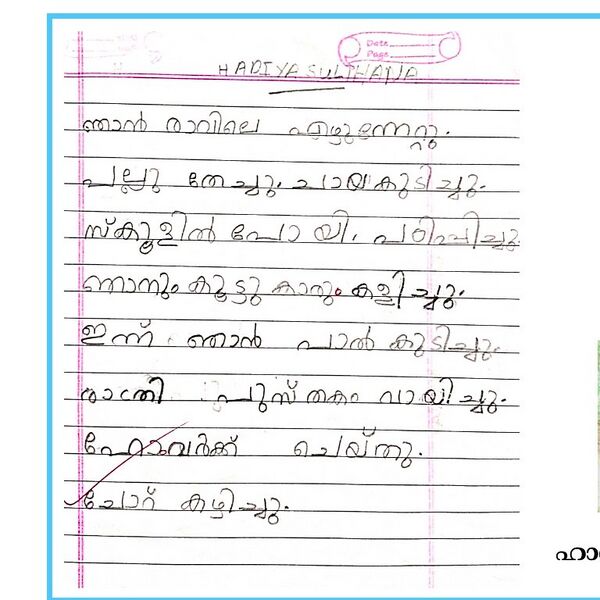 Date
Page
HADIYA SULTHANA
ഞാൻ രാവിലെ എഴുന്നേറ്റു.
പല്ലു തേച്ചു. ചായ കുടിച്ചു.
സ്കൂളിൽ പോയി. പഠിപ്പിച്ചു.
ഞാനും കൂട്ടുകാരും കളിച്ചു.
ഇന്ന് ഞാൻ പാൽ കുടിച്ചു.
രാത്രി പുസ്തകം വായിച്ചു.
ഹോംവർക്ക് ചെയ്തു.
ചോറ് കഴിച്ചു.